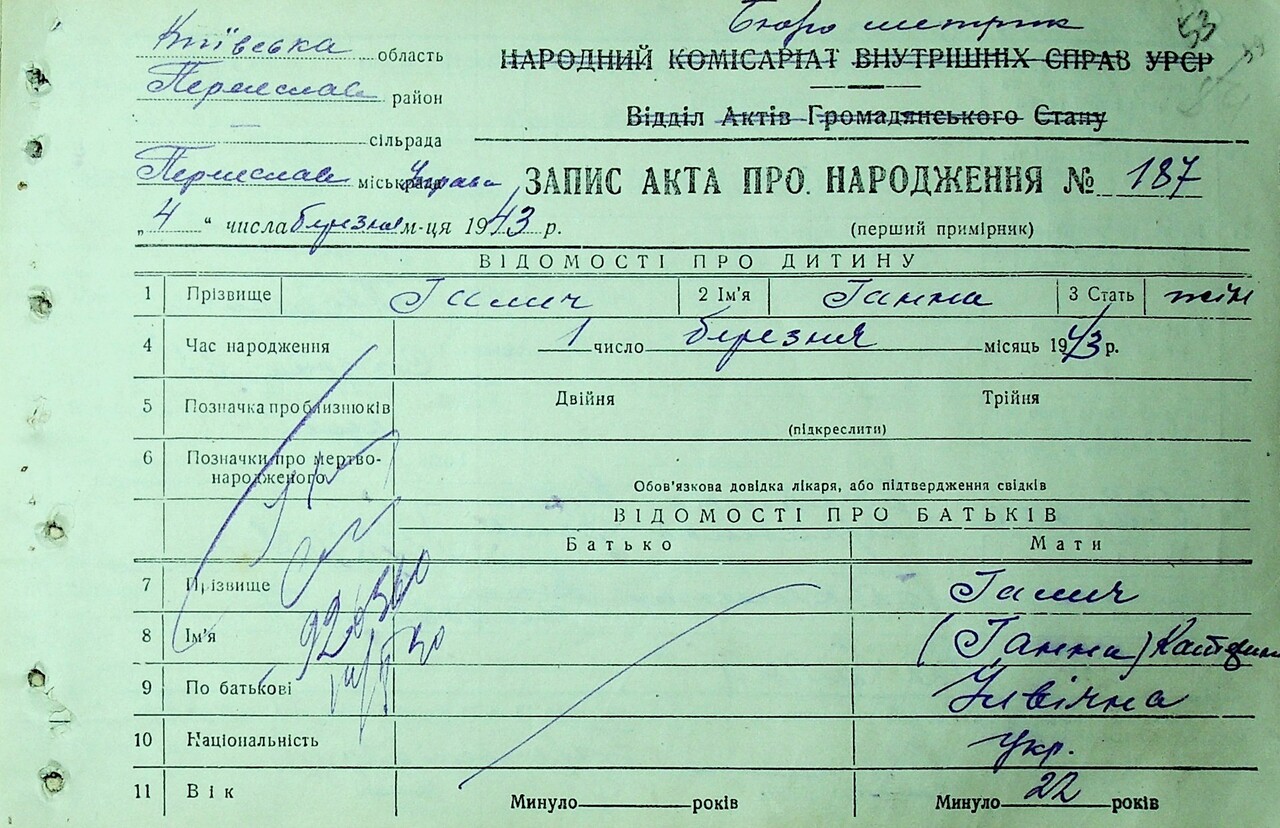 Бюро метрик
53
Київська область
НАРОДНИЙ КОМІСАРІАТ ВНУТРІШНІХ СПРАВ УРСР
Переяслав район
Відділ Актів Громадянського Стану
сільрада
Переяслав міськрада Управа
ЗАПИС АКТА ПРО НАРОДЖЕННЯ № 187
„4" числа березня м-ця 1943 р.
(перший примірник)
ВІДОМОСТІ ПРО ДИТИНУ
1 Прізвище Галич 2 Ім'я Ганна 3 Стать жін
4 Час народження 1 число березня місяць 1943 р.
5 Позначка про близнюків Двійня Трійня
(підкреслити)
6 Позначки про мертво-
народженого
Обов'язкова довідка лікаря, або підтвердження свідків
ВІДОМОСТІ ПРО БАТЬКІВ
Батько Мати
7 Прізвище Галич
8 Ім'я (Ганна)
9 По батькові
10 Національність укр.
11 Вік Минуло років Минуло 22 років